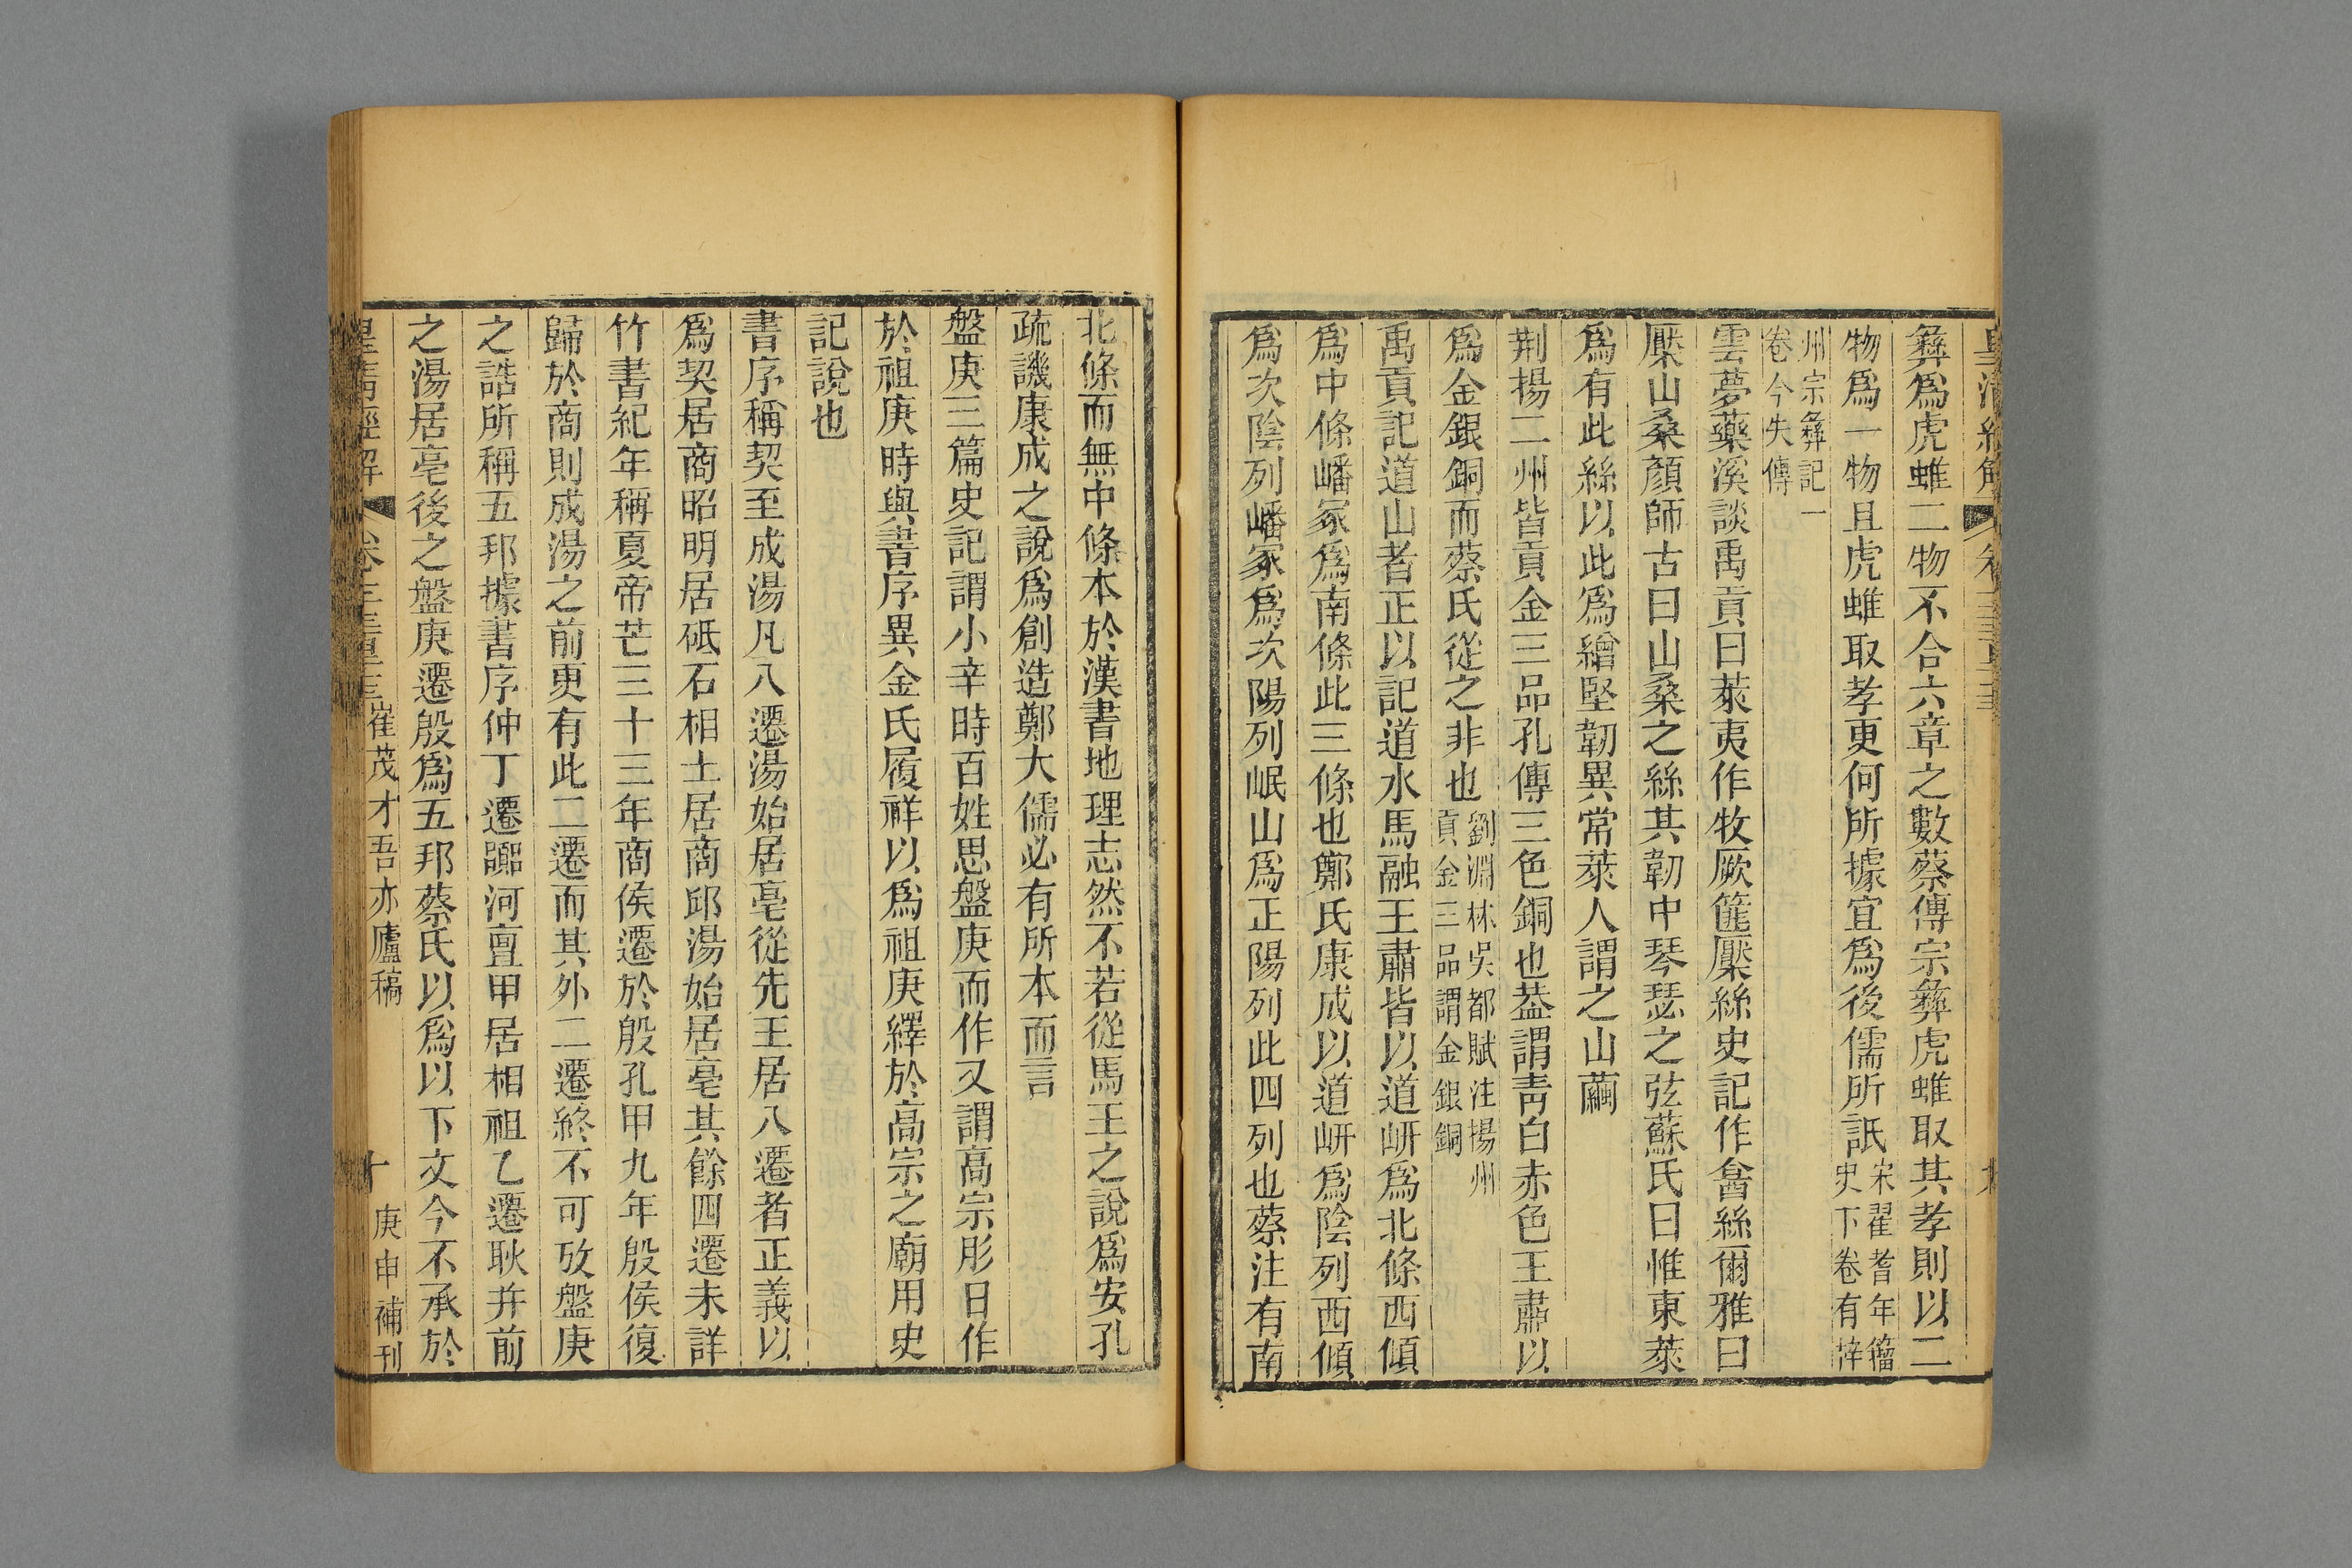 彝爲虎蜼二物不合六章之數蔡傳宗彝虎蜼取其孝則以二
物爲一物且虎蜼取孝更何所據宜爲後儒所詆宋翟耆年籀史下卷有梓
州宗彝記一卷今失傳
雲夢藥溪談禹貢曰萊夷作牧厥篚檿絲史記作酓絲爾雅曰
檿山桑顏師古曰山桑之絲其韌中琴瑟之弦蘇氏曰惟東萊
爲有此絲以此爲繒堅韌異常萊人謂之山繭
荆揚二州皆貢金三品孔傳三色銅也葢謂靑白赤色王肅以
爲金銀銅而蔡氏從之非也劉淵林吳都賦注揚州貢金三品謂金銀銅
禹貢記道山者正以記道水馬融王肅皆以道岍爲北條西傾
爲中條嶓冢爲南條此三條也鄭氏康成以道岍爲陰列西傾
爲次陰列嶓冢爲次陽列岷山爲正陽列此四列也蔡注有南
北條而無中條本於漢書地理志然不若從馬王之說爲安孔
疏譏康成之說爲創造鄭大儒必有所本而言
盤庚三篇史記謂小辛時百姓思盤庚而作又謂高宗肜日作
於祖庚時與書序異金氏履祥以爲祖庚繹於高宗之廟用史
記說也
書序稱契至成湯凡八遷湯始居亳從先王居八遷者正義以
爲契居商昭明居砥石相土居商邱湯始居亳其餘四遷未詳
竹書紀年稱夏帝芒三十三年商侯遷於殷孔甲九年殷侯復
歸於商則成湯之前更有此二遷而其外二遷終不可攷盤庚
之誥所稱五邦據書序仲丁遷嚻河亶甲居相祖乙遷耿幷前
之湯居亳後之盤庚遷殷爲五邦蔡氏以爲以下文今不承於
皇淸經解 崔茂才吾亦廬稿 十 庚申補刊